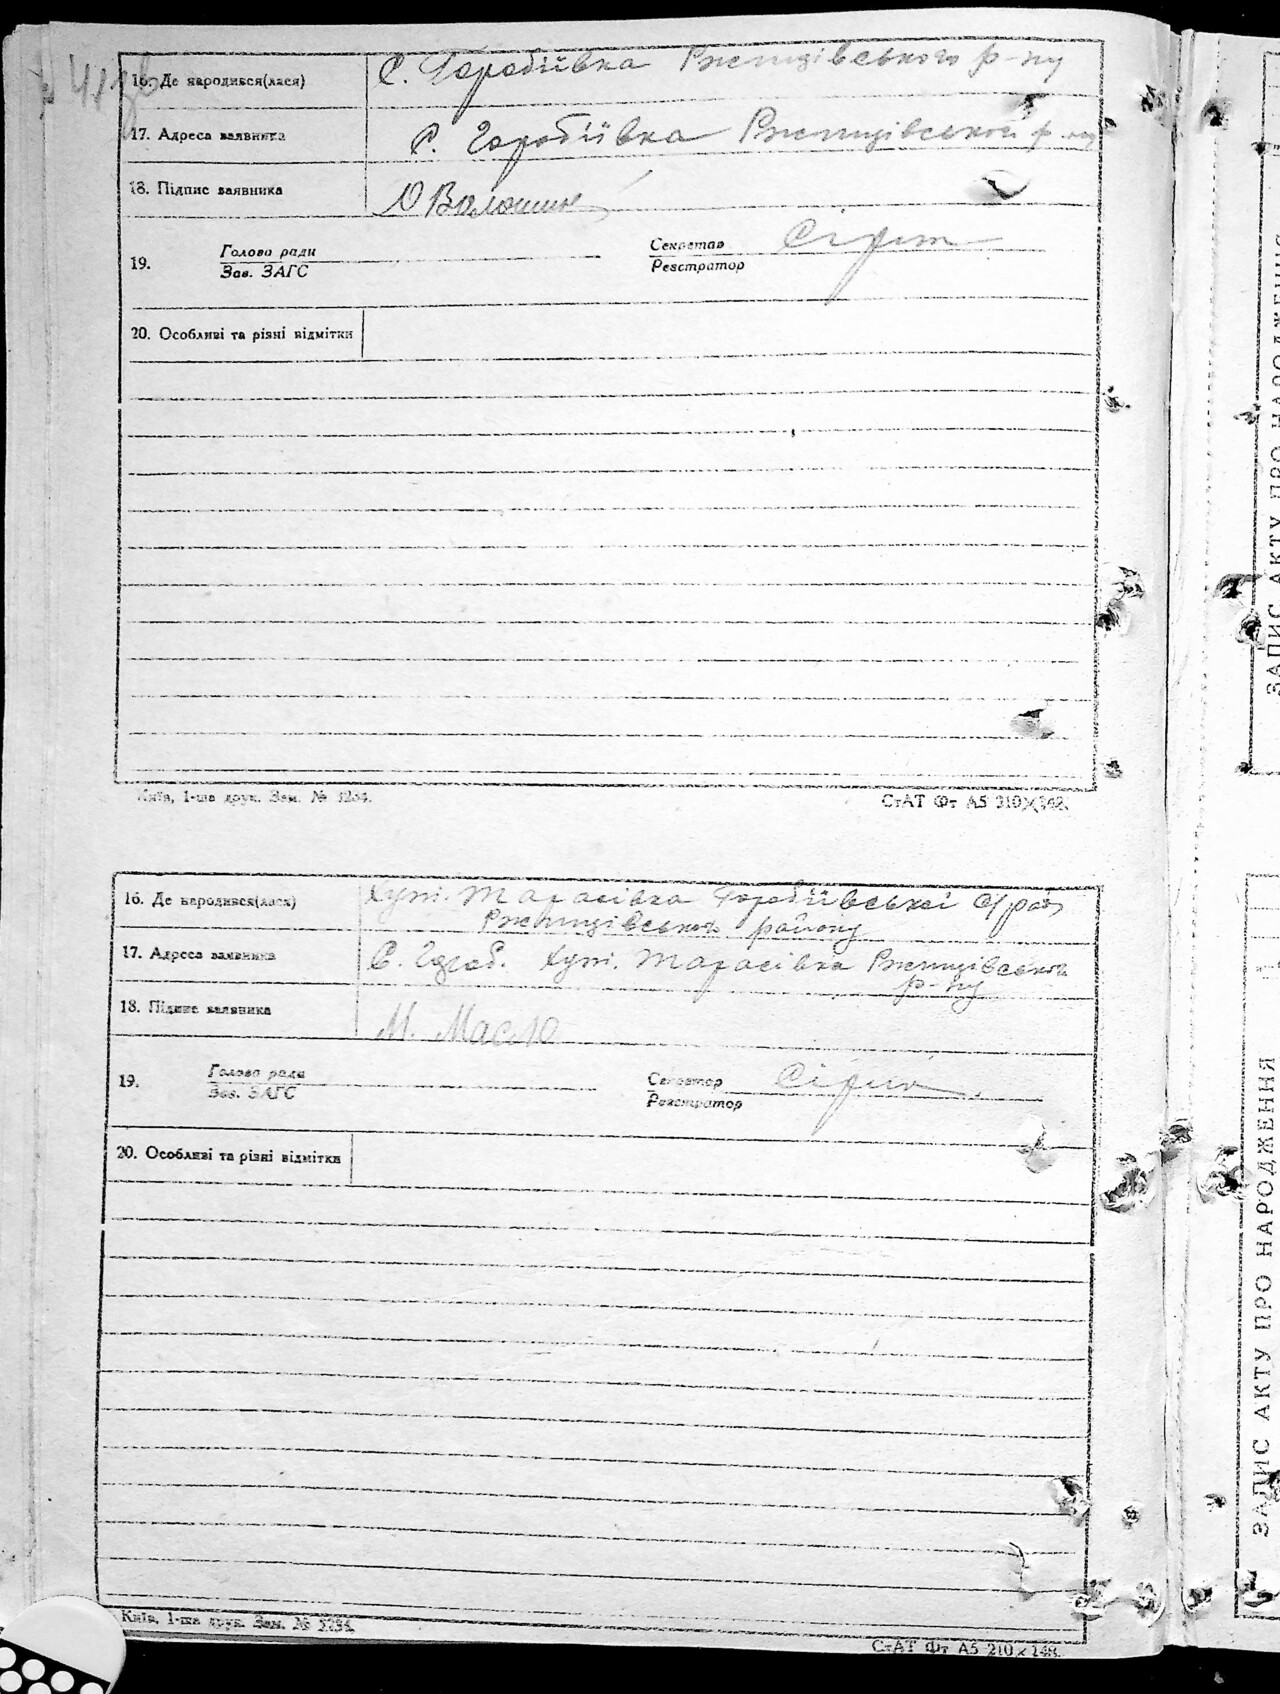 41зв
16. Де народився(лася) С. Горобіївка Ржищівського р-ну
17. Адреса заявника С. Горобіївка Ржищівського р-ну
18. Підпис заявника О Волошин
19. Голова ради Секретар Сірик
Зав. ЗАГС Реєстратор
20. Особливі та різні відмітки
Київ, 1-ша друк. Зам. № 5254.
СтАТ Фт А5 210×148.
16. Де народився(лася) Хут. Тарасівка Горобіївської с/ради
Ржищівського району
17. Адреса заявника С. Хут. Тарасівка Ржищівського
р-ну
18. Підпис заявника М. Масло
19. Голова ради Секретар Сірик
Зав. ЗАГС Реєстратор
20. Особливі та різні відмітки
Київ, 1-ша друк. Зам. № 5254.
СтАТ Фт А5 210×148.
ЗАПИС АКТУ ПРО НАРОДЖЕННЯ
ЗАПИС АКТУ ПРО НАРОДЖЕННЯ